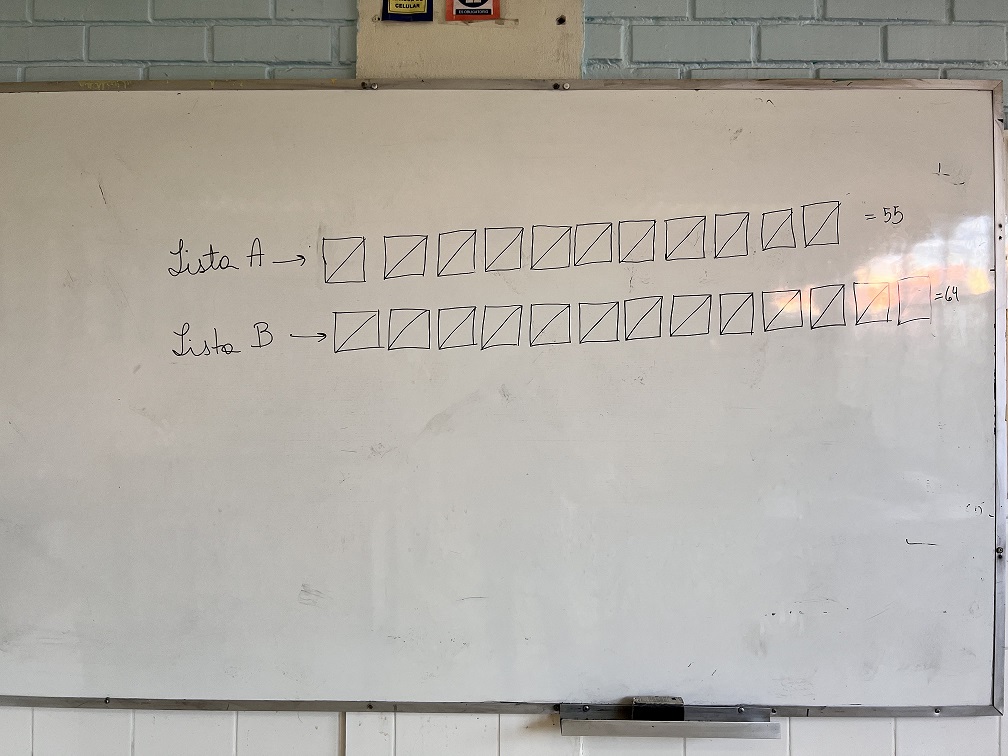 CELULAR
Lista A → = 55
Lista B → = 64